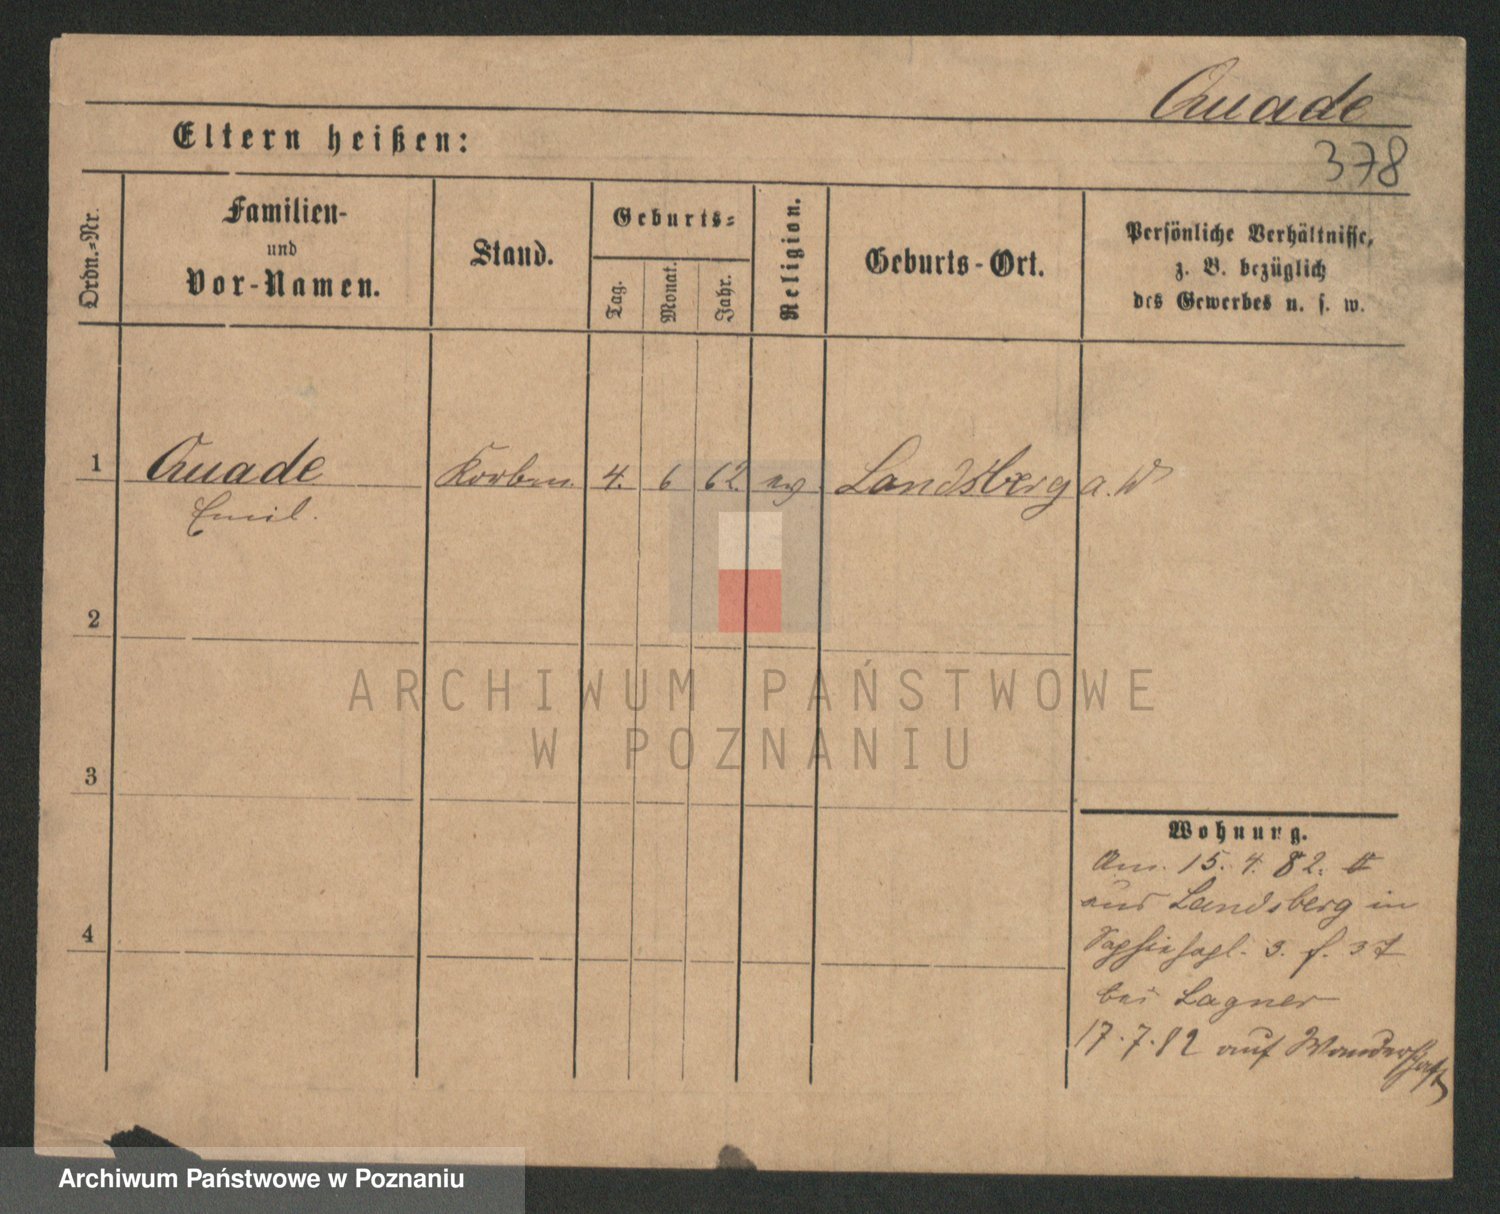 Quade
378
Eltern heißen:
Ordn.-Nr.
Familien-
und
Vor-Namen.
Stand.
Geburts-
Tag.
Monat.
Jahr.
Religion.
Geburts-Ort.
Persönliche Verhältnisse,
z. B. bezüglich
des Gewerbes u. s. w.
1 Quade Korbm. 4. 6 62. ev Landsberg a. W
Emil.
2
3
4
ARCHIWUM PAŃSTWOWE
W POZNANIU
Wohnung.
15. 4. 82.
aus Landsberg in
3. 37
bei Lagner
17.7.82 auf Wanderschaft
Archiwum Państwowe w Poznaniu